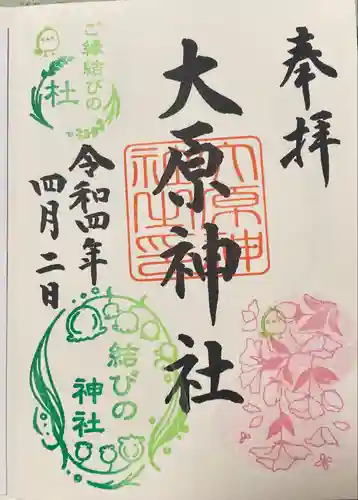 奉拝
大原神社
大原神
社之印
令和四年
四月二日
ご縁結びの
杜
結びの
神社